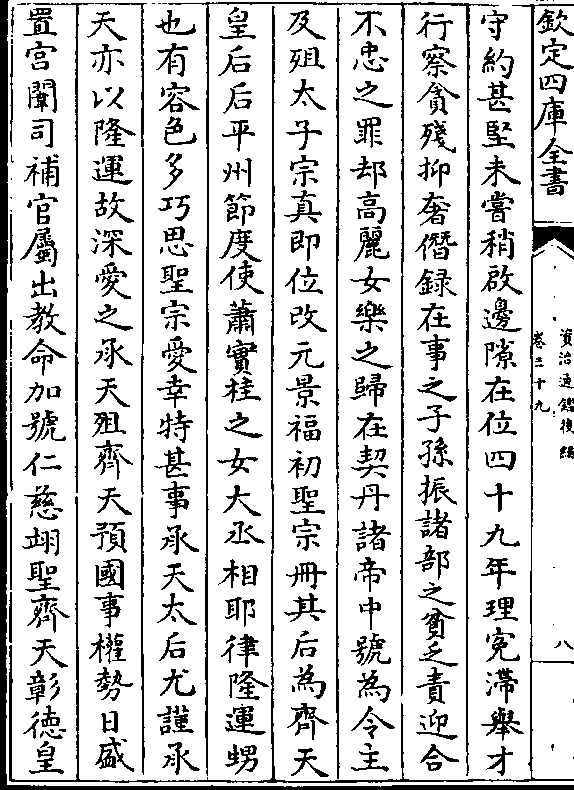 欽定四庫全書
資治通鑑後編
卷三十九
八
守約甚堅未嘗稍啟邊隙在位四十九年理寃滯舉才
行察貪殘抑奢僭録在事之子孫振諸部之貧乏責迎合
不忠之罪却高麗女樂之歸在契丹諸帝中號為令主
及殂太子宗真即位改元景福初聖宗冊其后為齊天
皇后后平州節度使蕭實桂之女大丞相耶律隆運甥
也有容色多巧思聖宗愛幸特甚事承天太后尤謹承
天亦以隆運故深愛之承天殂齊天預國事權勢日盛
置宫闈司補官屬出教命加號仁慈翊聖齊天彰徳皇